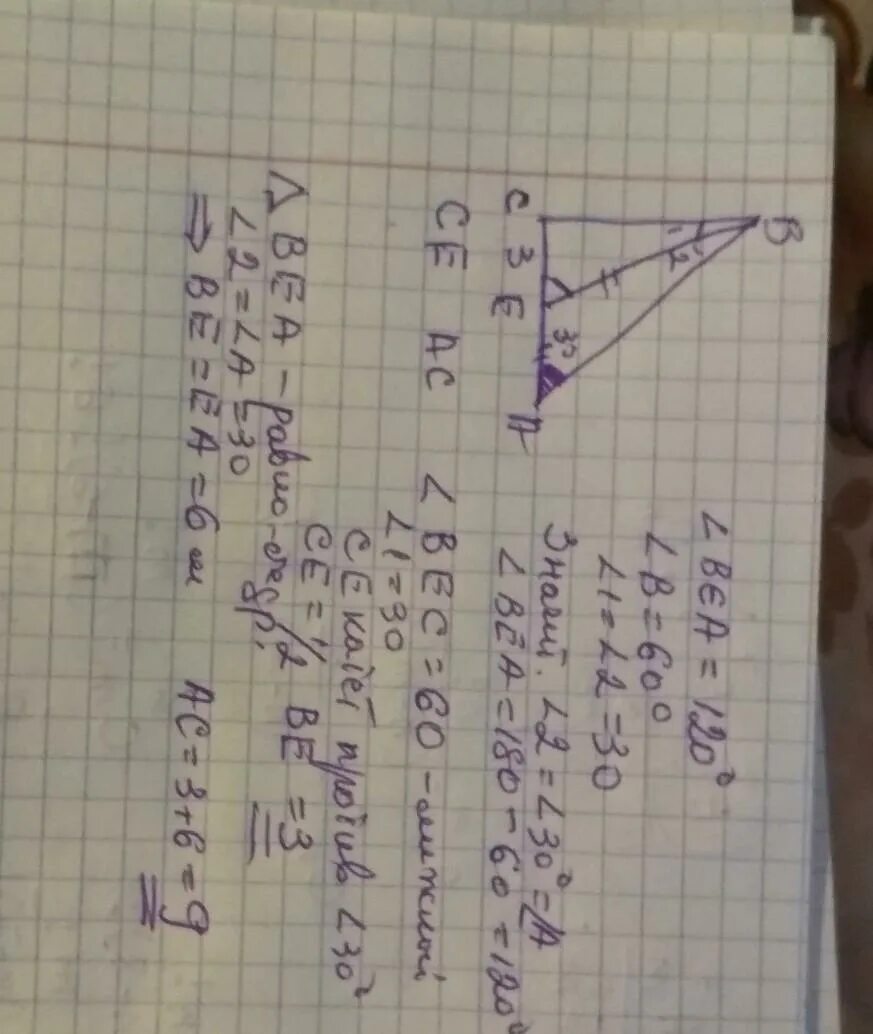 B
1 2
C 3 E 30 A
∠BEA = 120°
∠B = 60°
∠1 = ∠2 = 30
∠2 = ∠30° = ∠A
∠BEA = 180 - 60 = 120°
CE AC
∠BEC = 60 -
∠1 = 30
CE катет против ∠30°
CE = 1/2 BE = 3
△ BEA -
∠2 = ∠A = 30
⇒ BE = EA = 6 см
AC = 3 + 6 = 9